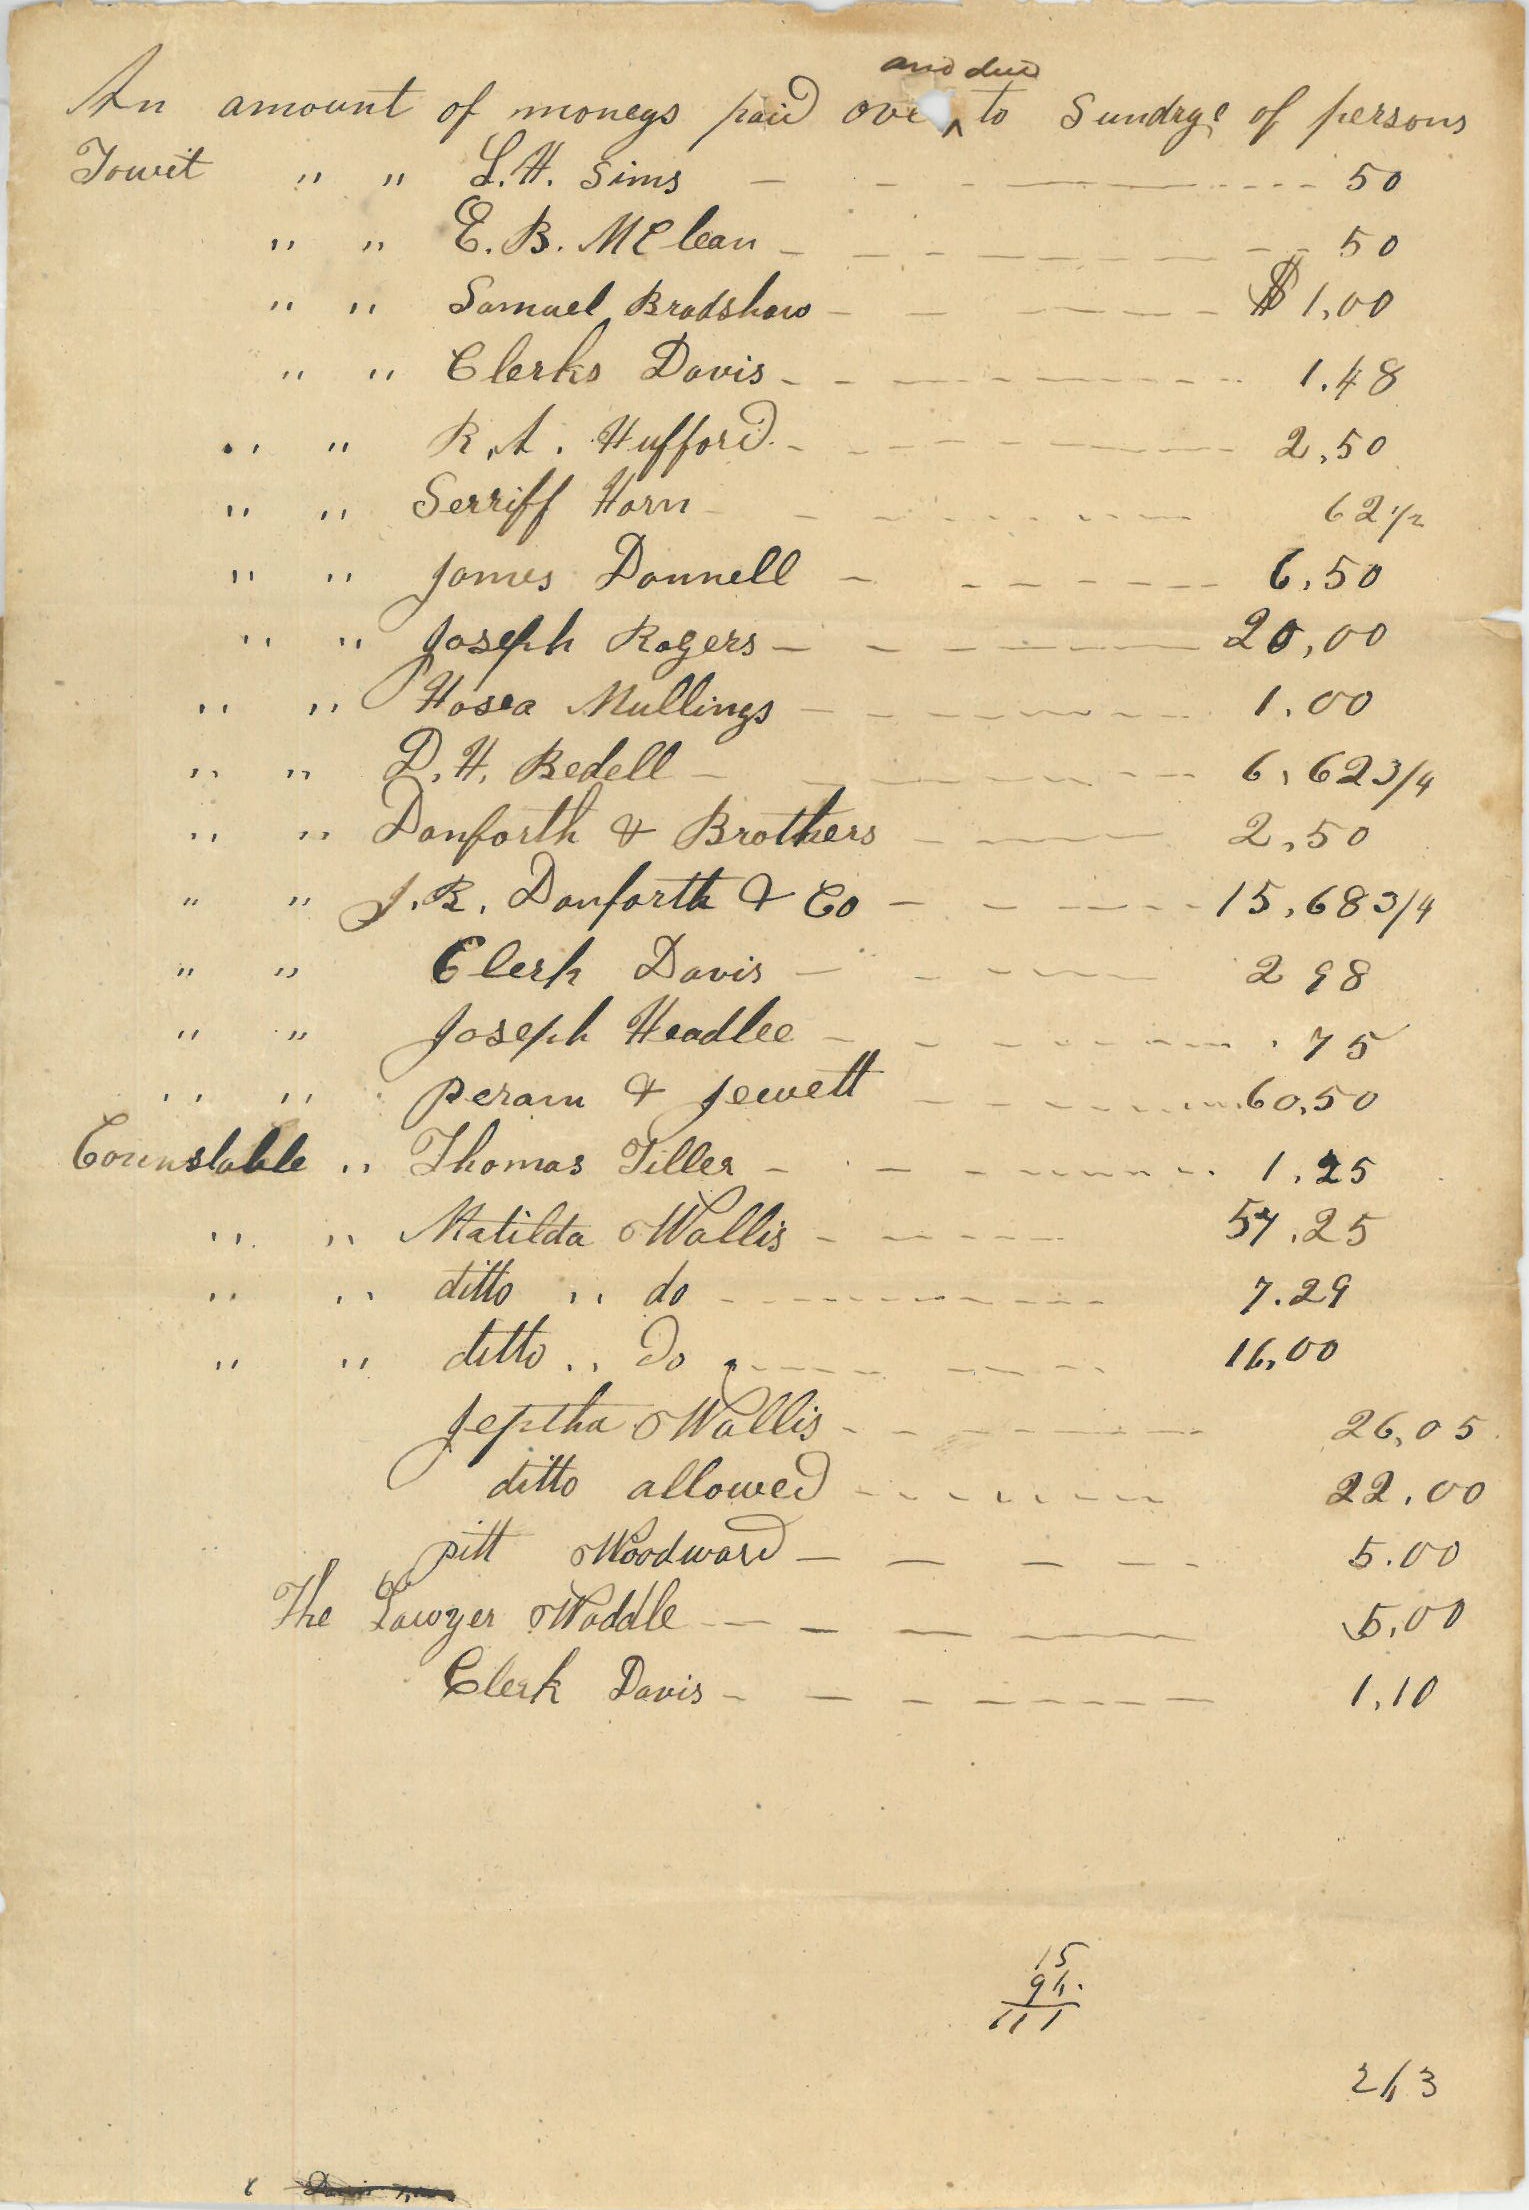 An amount of moneys paid over ^and due to Sundrye of persons
Towit " " L. H. Sims - - - - - - - 50
" " E. B. McClean - - - - - - - 50
" " Samuel Bradshaw - - - - - - $1,00
" " Clerks Davis - - - - - - - 1.48
" " R. A. Hufford - - - - - - - 2,50
" " Serriff Horn - - - - - - - 62 1/2
" " James Donnell - - - - - - - 6,50
" " Joseph Rogers - - - - - - - 20,00
" " Hosea Mullings - - - - - - - 1.00
" " D. H. Bedell - - - - - - - 6,62 3/4
" " Danforth & Brothers - - - - 2,50
" " J. R. Danforth & Co - - - - - 15,68 3/4
" " Clerk Davis - - - - - 2 98
" " Joseph Headlee - - - - - - - 75
" " Peram & Jewett - - - - - - - 60,50
Counstable " Thomas Tiller - - - - - - - 1.25
" " Matilda Wallis - - - - - 57.25
" " ditto " do - - - - - - - 7.29
" " ditto " do - - - - - - - 16,00
Jeptha Wallis - - - - - - - 26,05
ditto allowed - - - - - - - 22.00
pitt Woodward - - - - - 5.00
The Lawyer Waddle - - - - - 5,00
Clerk Davis - - - - - - - 1,10
15
96
111
263